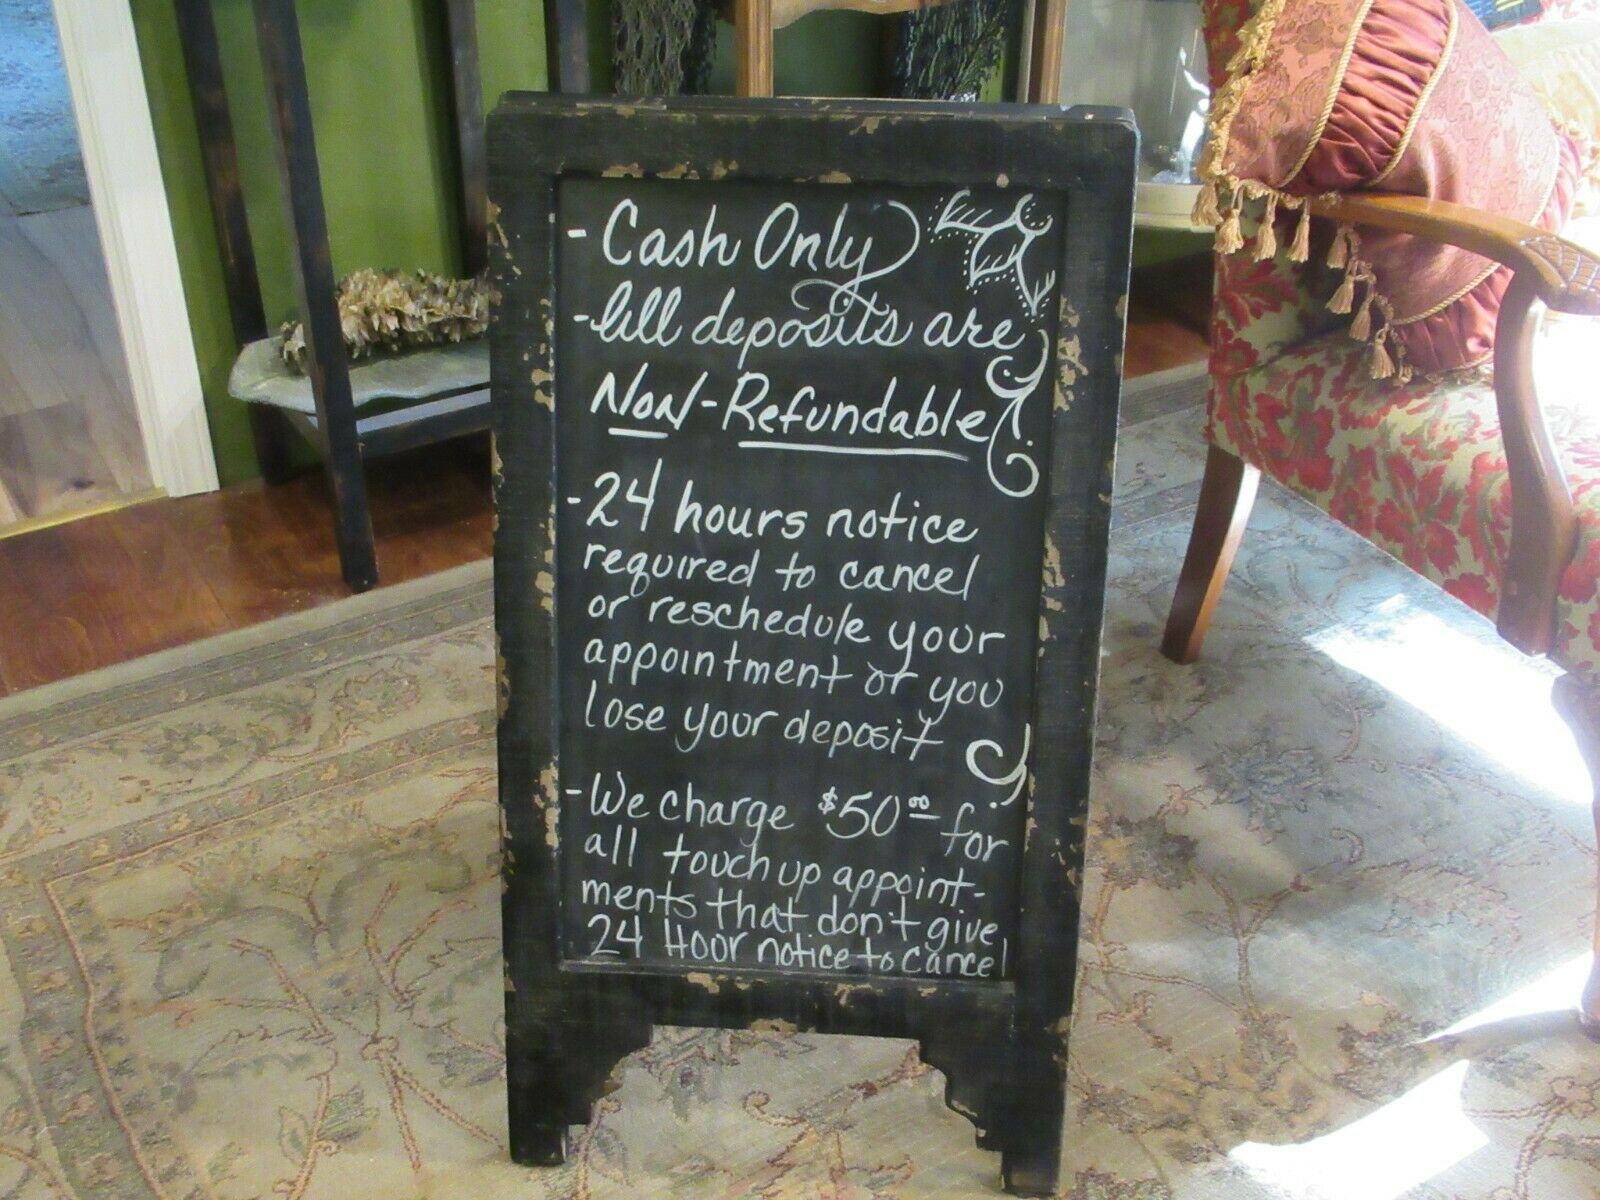 - Cash Only
- All deposits are
Non-Refundable
- 24 hours notice
required to cancel
or reschedule your
appointment or you
lose your deposit
- We charge $50.00 for
all touch up appoint-
ments that don't give
24 Hour notice to cancel